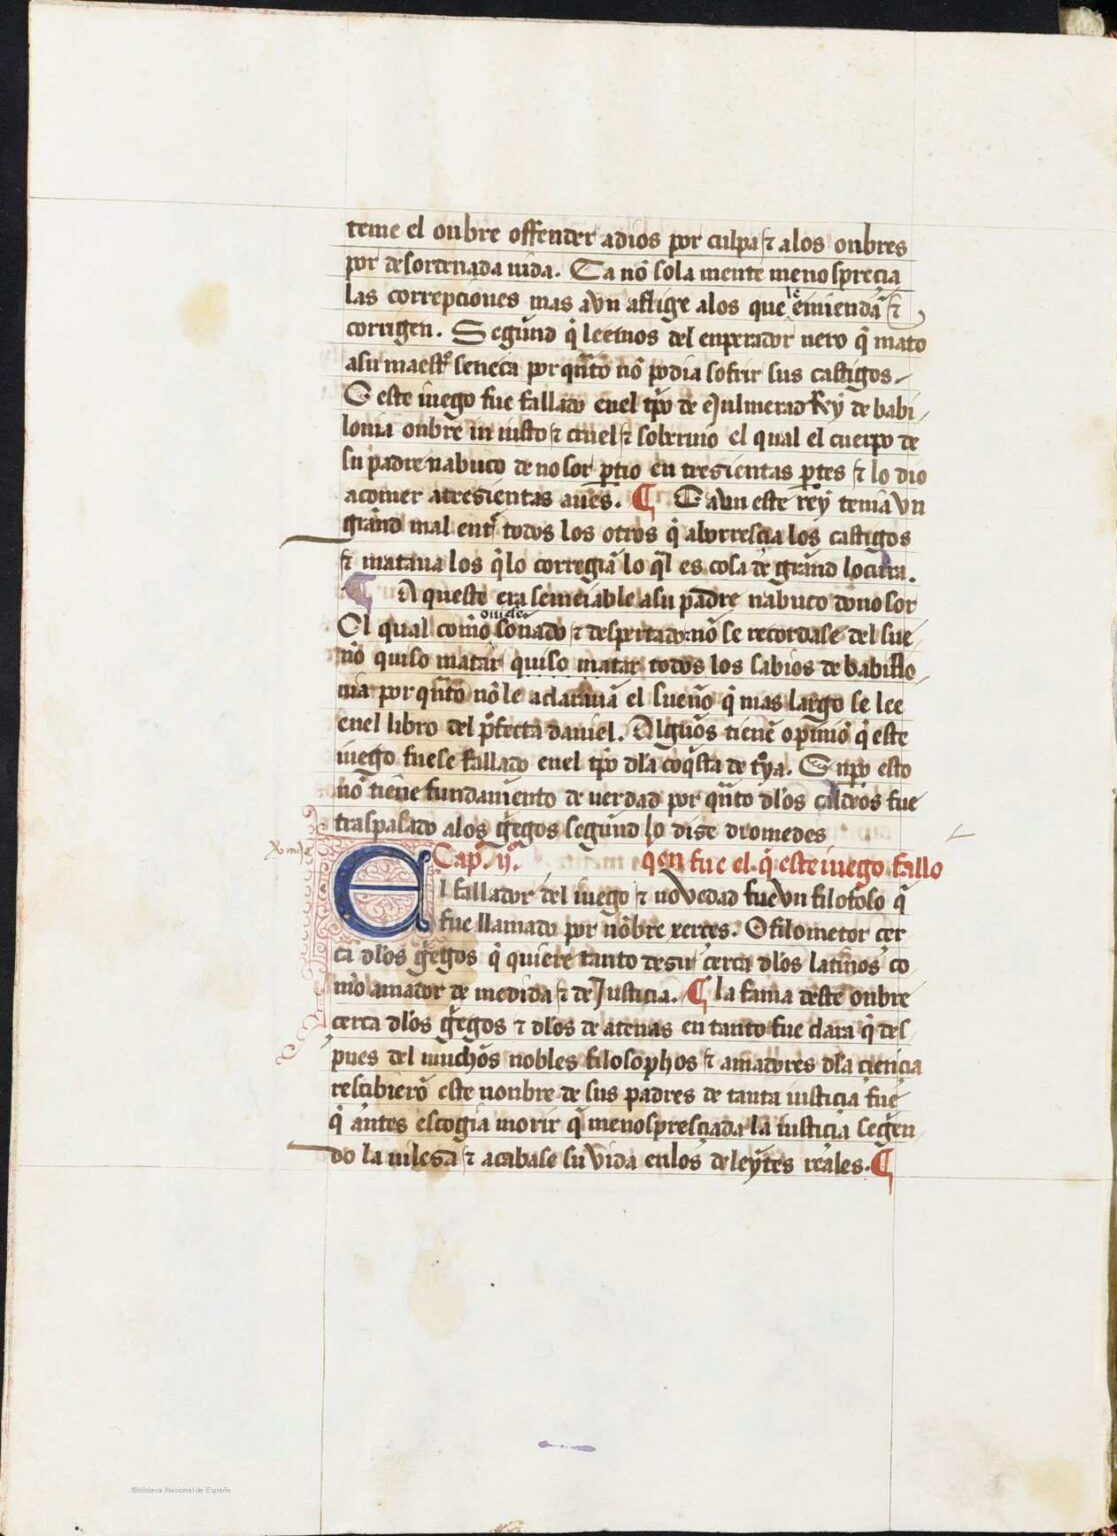 teme el onbre offender adios por culpa ⁊ alos onbres
por desordenada uida. Ca nō sola mente menosprecia
las correpciones mas avn aflige alos que le emiendā ⁊
corrigen. Segund q̄ leemos del enperador nero q̄ mato
asu maestro seneca por quāto nō podia sofrir sus castigos.
E este iuego fue fallado enel tp̄o de eujlmerad Rey de babi
lonia onbre in iusto ⁊ cruel ⁊ soberuio el qual el cuerpo de
su padre nabuco de nosor ꝑtio en tresientas ꝑtes ⁊ lo dio
acomer atresientas aues. ¶ E avn este rey tenia vn
grand mal entr̄ todos los otros q̄ aborrescia los castigos
⁊ mataua los q̄lo corregiā lo q̄l es cosa de grand locura.
¶ Aqueste era semeiable asu padre nabuco donosor
El qual como ouiese soñado ⁊ despertado: nō se recordase del sue
ño quiso matar quiso matar todos los sabios de babillo
nia por quāto nō le aclarauā el sueño q̄ mas largo se lee
enel libro del ꝓfecta daniel. Algūos tienē opiniō q̄ este
iuego fuese fallado enel tp̄o dla coq̄sta de tr̄ya. E np̄o esto
nō tiene fundamento de uerdad por quāto dl̄os caldeos fue
traspasado alos gēgos segund lo dise diomedes
Cap̄. ij. qen fue el q̄ este iuego fallo
El fallador del iuego ⁊ novedad fue vn filosofo q̄
fue llamado por nōbre xerxes. O filometor cer
ca dl̄os gēgos q̄ quiere tanto desir cerca dl̄os latinos co
mo amador de medida ⁊ de Justicia. ¶ la fama deste onbre
cerca dl̄os gēgos ⁊ dl̄os de atenas en tanto fue clara q̄ des
pues del muchos nobles filosophos ⁊ amadores dla ciencia
rescibierō este nonbre de sus padres de tanta iusticia fue
q̄ antes escogia morir q̄ menospresciada la iusticia segen
do la uilesa ⁊ acabase su vida enlos deleytes reales. ¶
Biblioteca Nacional de España